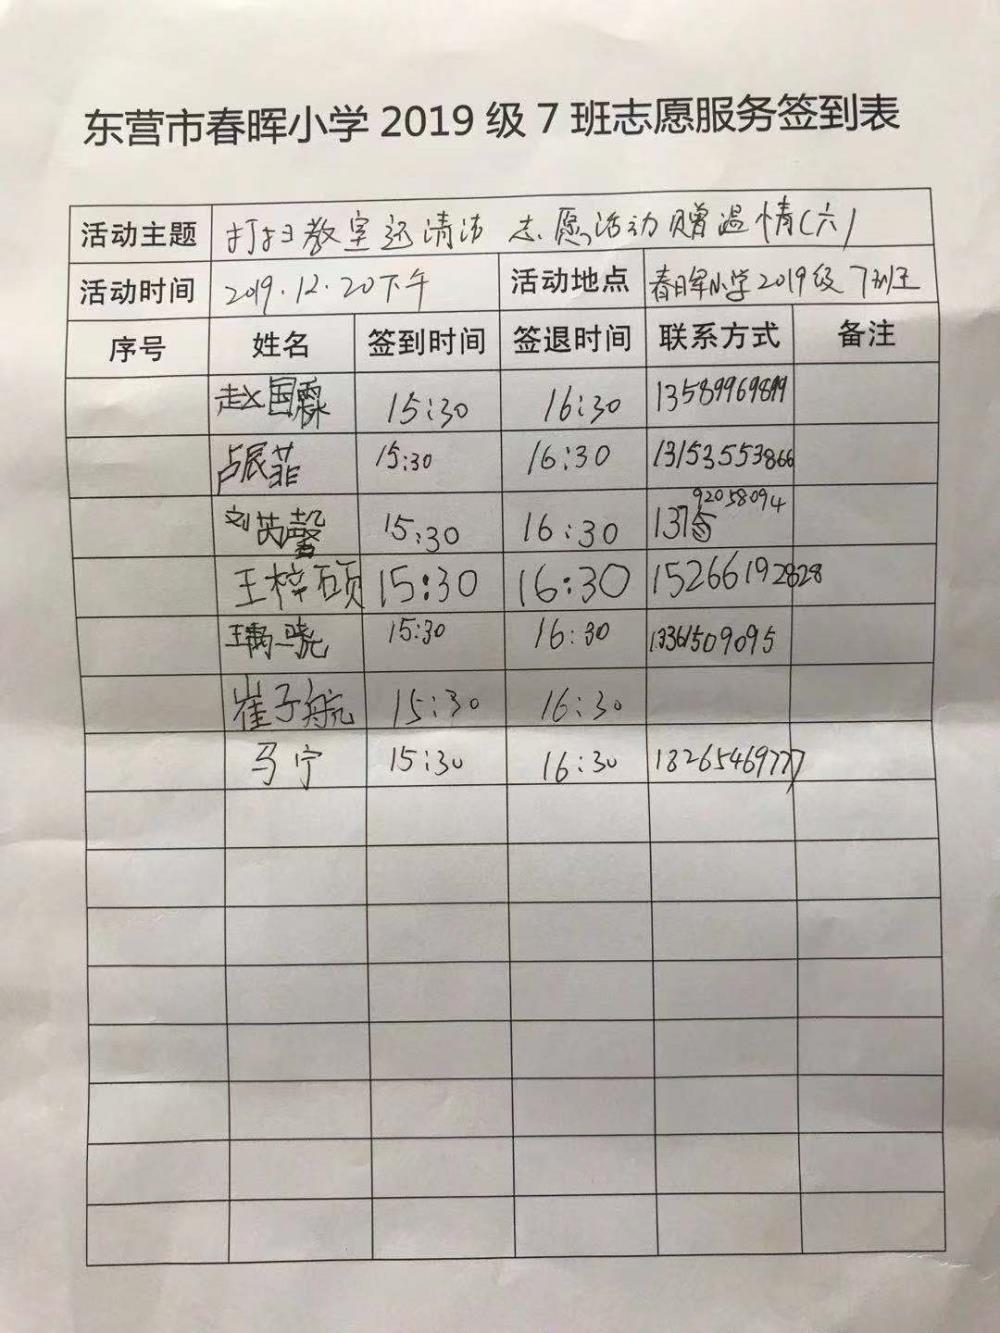 东营市春晖小学 2019 级 7 班志愿服务签到表
活动主题 打扫教室还清洁 志愿活动赠温情(六)
活动时间 2019.12.20下午 活动地点 春晖小学2019级7班
序号 姓名 签到时间 签退时间 联系方式 备注
赵国霖 15:30 16:30 13589969899
卢辰菲 15:30 16:30 13153553866
92058094
刘芮馨 15:30 16:30 137
王梓硕 15:30 16:30 15266192828
15:30 16:30 13361509095
崔子航 15:30 16:30
马宁 15:30 16:30 18265469777